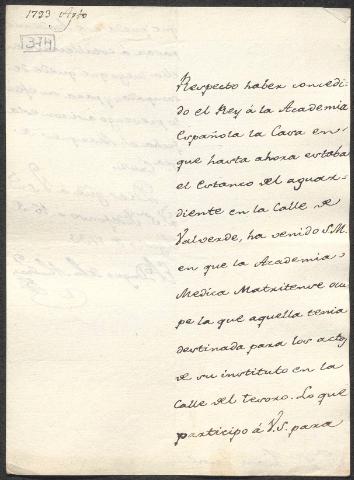 1793 Agto
374
Respecto haber concedi-
do el Rey á la Academia
Española la Casa en
que hasta ahora estaba
el Estanco del aguar-
diente en la Calle de
Valverde, ha venido S.M.
en que la Academia
Medica Matritense ocu
pe la que aquella tenia
destinada para los actos
de su instituto en la
Calle del tesoro. Lo que
participo á V.S. para